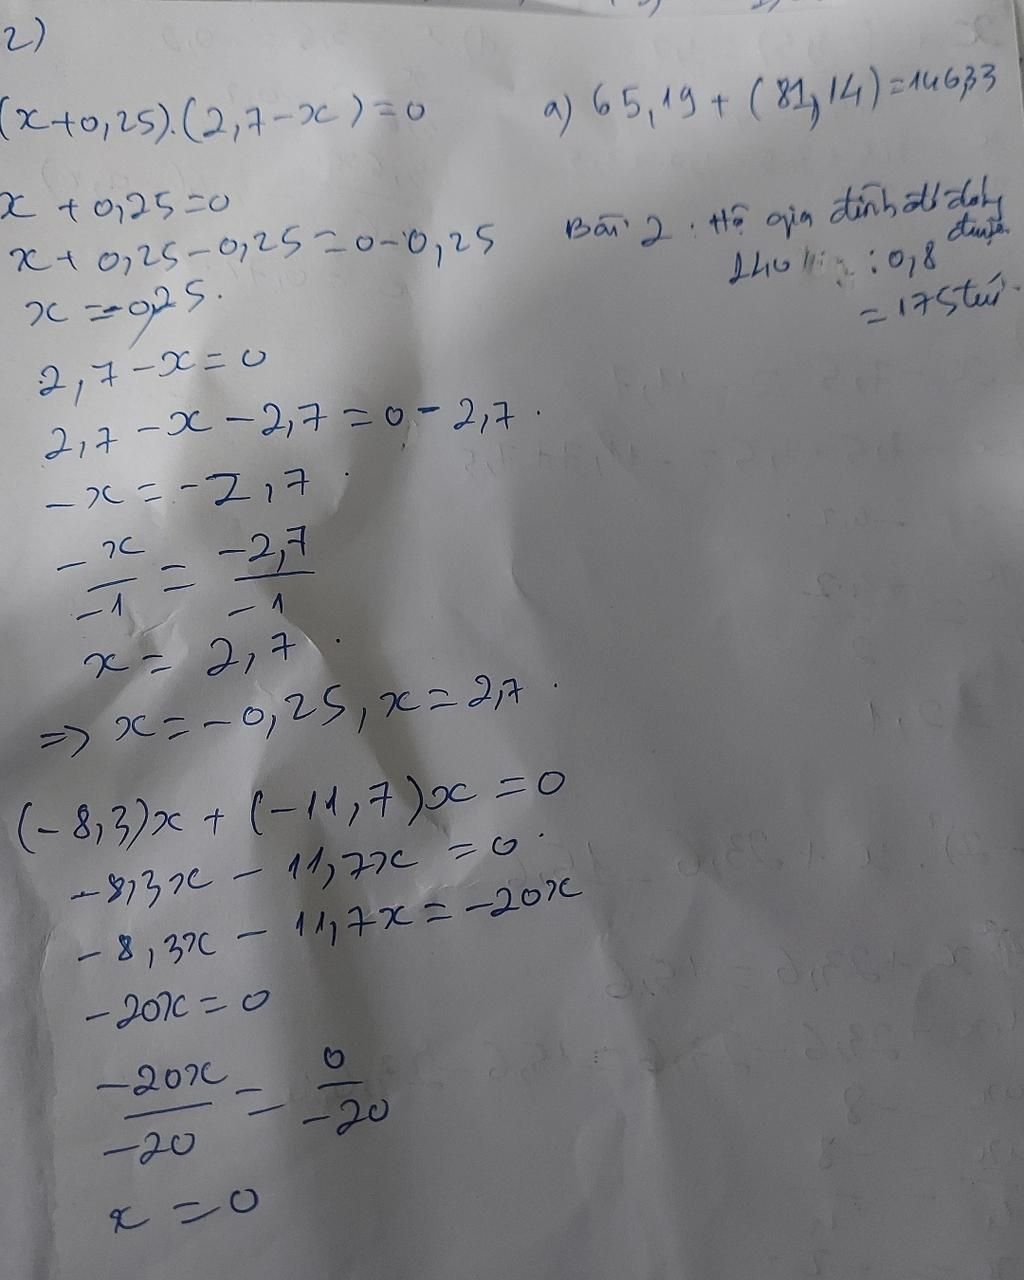 2)
(x+0,25).(2,7-x)=0
x+0,25=0
x+0,25-0,25=0-0,25
x=-0,25.
2,7-x=0
2,7-x-2,7=0-2,7.
-x=-2,7
-x/-1 = -2,7/-1
x=2,7.
=> x=-0,25, x=2,7.
(-8,3)x+(-11,7)x=0
-8,3x-11,7x=0
-8,3x-11,7x=-20x
-20x=0
-20x/-20 = 0/-20
x=0
a) 65,19+(81,14)=146,33
Bài 2: Hộ gia đình đó đóng
được
140 : 0,8
= 175 túi.